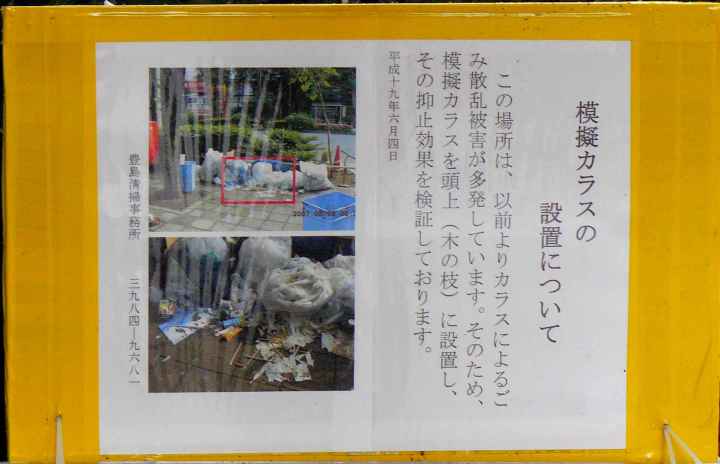 模擬カラスの
設置について
この場所は、以前よりカラスによるご
み散乱被害が多発しています。そのため、
模擬カラスを頭上（木の枝）に設置し、
その抑止効果を検証しております。
平成十九年六月四日
豊島清掃事務所　三九八四―九六八一